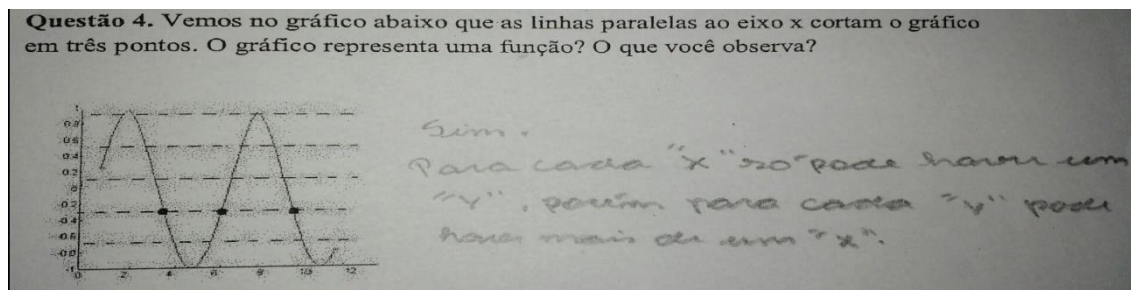 Questão 4. Vemos no gráfico abaixo que as linhas paralelas ao eixo x cortam o gráfico
em três pontos. O gráfico representa uma função? O que você observa?
1
0.8
0.6
0.4
0.2
0
-0.2
-0.4
-0.6
-0.8
-1
0 2 4 6 8 10 12
Sim.
Para cada "x" só pode haver um
"y", porém para cada "y" pode
haver mais de um "x".